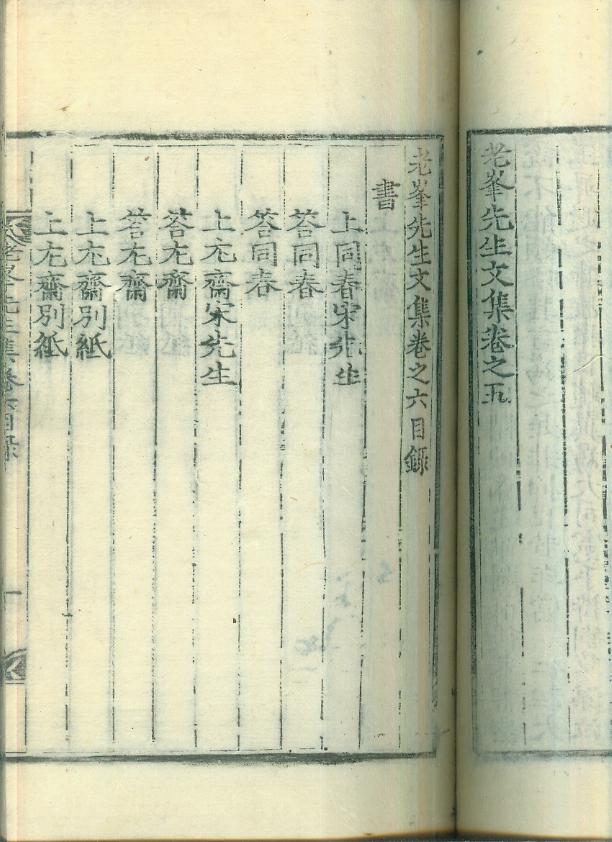 老峯先生文集卷之五
老峯先生文集卷之六目錄
書
上同春宋先生
答同春
答同春
上尤齋宋先生
答尤齋
答尤齋
上尤齋別紙
上尤齋別紙
老峯先生集卷六目錄 一